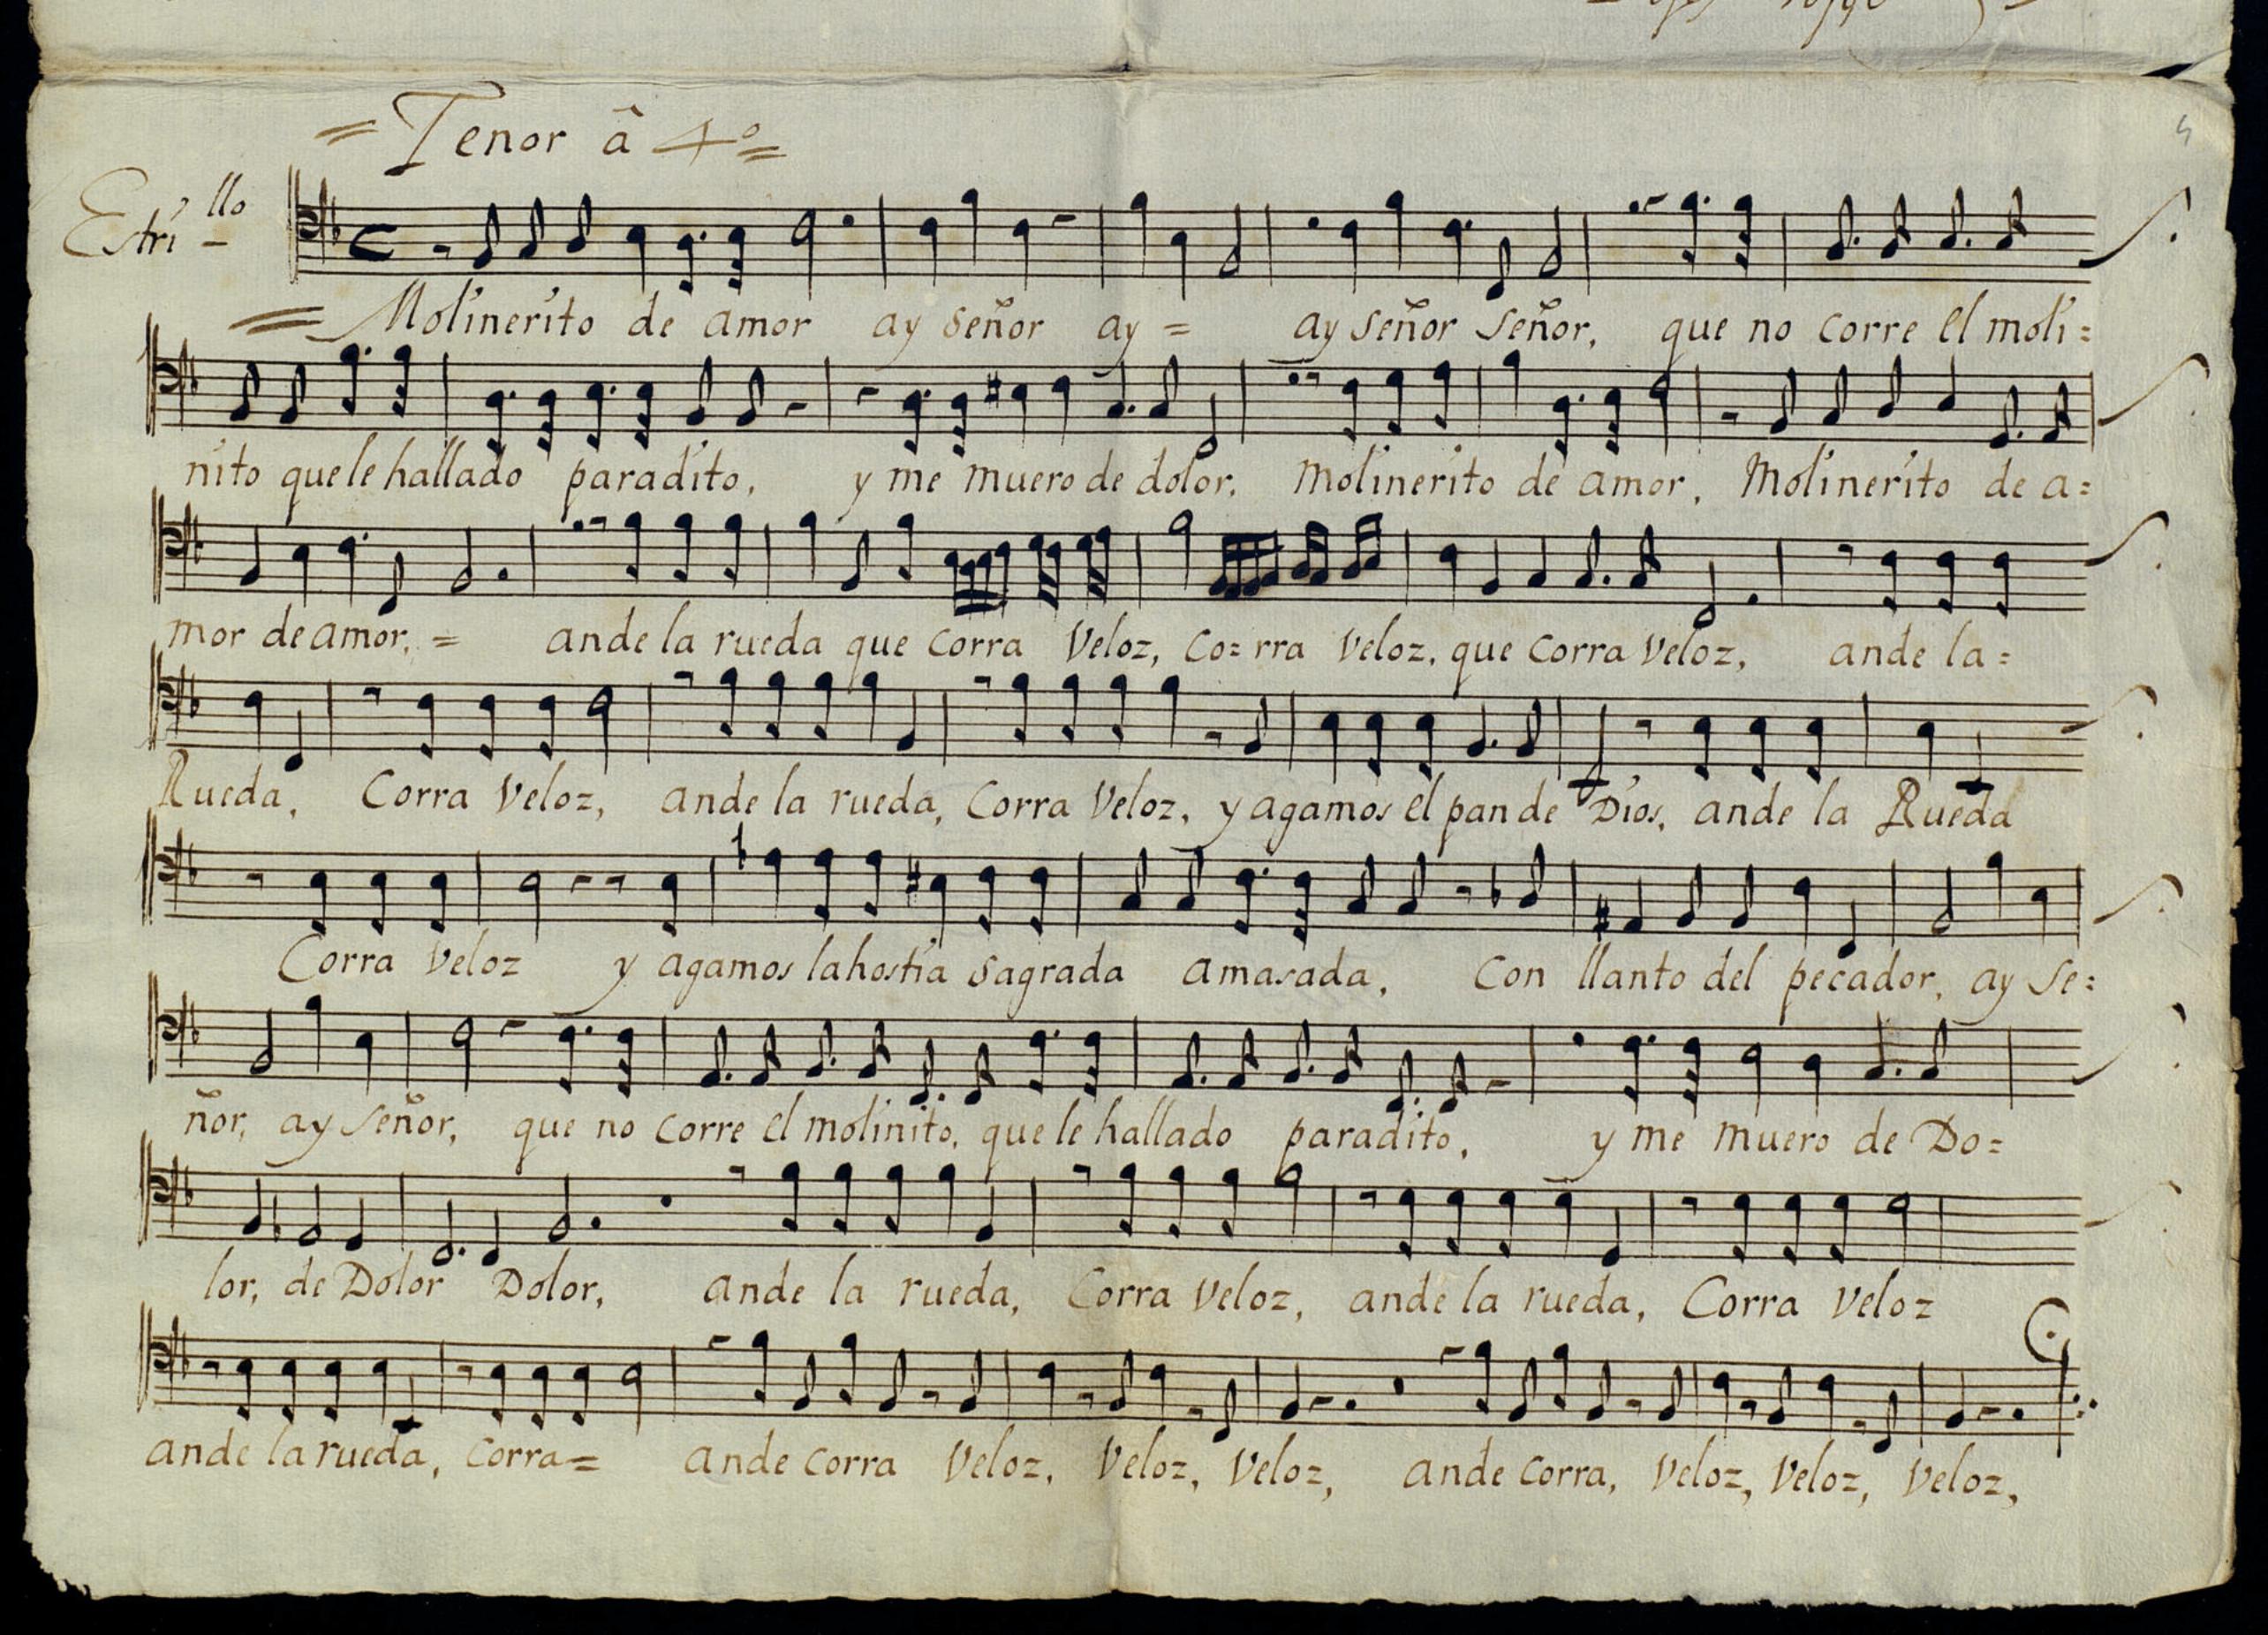 = Tenor â 4º =
Estri-llo
= Molinerito de amor ay señor ay = ay señor señor, que no corre el moli=
nito que le hallado paradito, y me muero de dolor, Molinerito de amor, Molinerito de a=
mor de amor, = ande la rueda que corra Veloz, co=rra Veloz, que corra Veloz, ande la=
Rueda, Corra Veloz, ande la rueda, Corra Veloz, y agamos el pan de Dios, ande la Rueda
Corra Veloz y agamos la hostia sagrada amasada, Con llanto del pecador, ay se=
ñor, ay señor, que no corre el molinito, que le hallado paradito, y me muero de Do=
lor, de Dolor Dolor, ande la rueda, Corra Veloz, ande la rueda, Corra Veloz
ande la rueda, corra= ande corra Veloz, Veloz, Veloz, ande corra, Veloz, Veloz, Veloz,